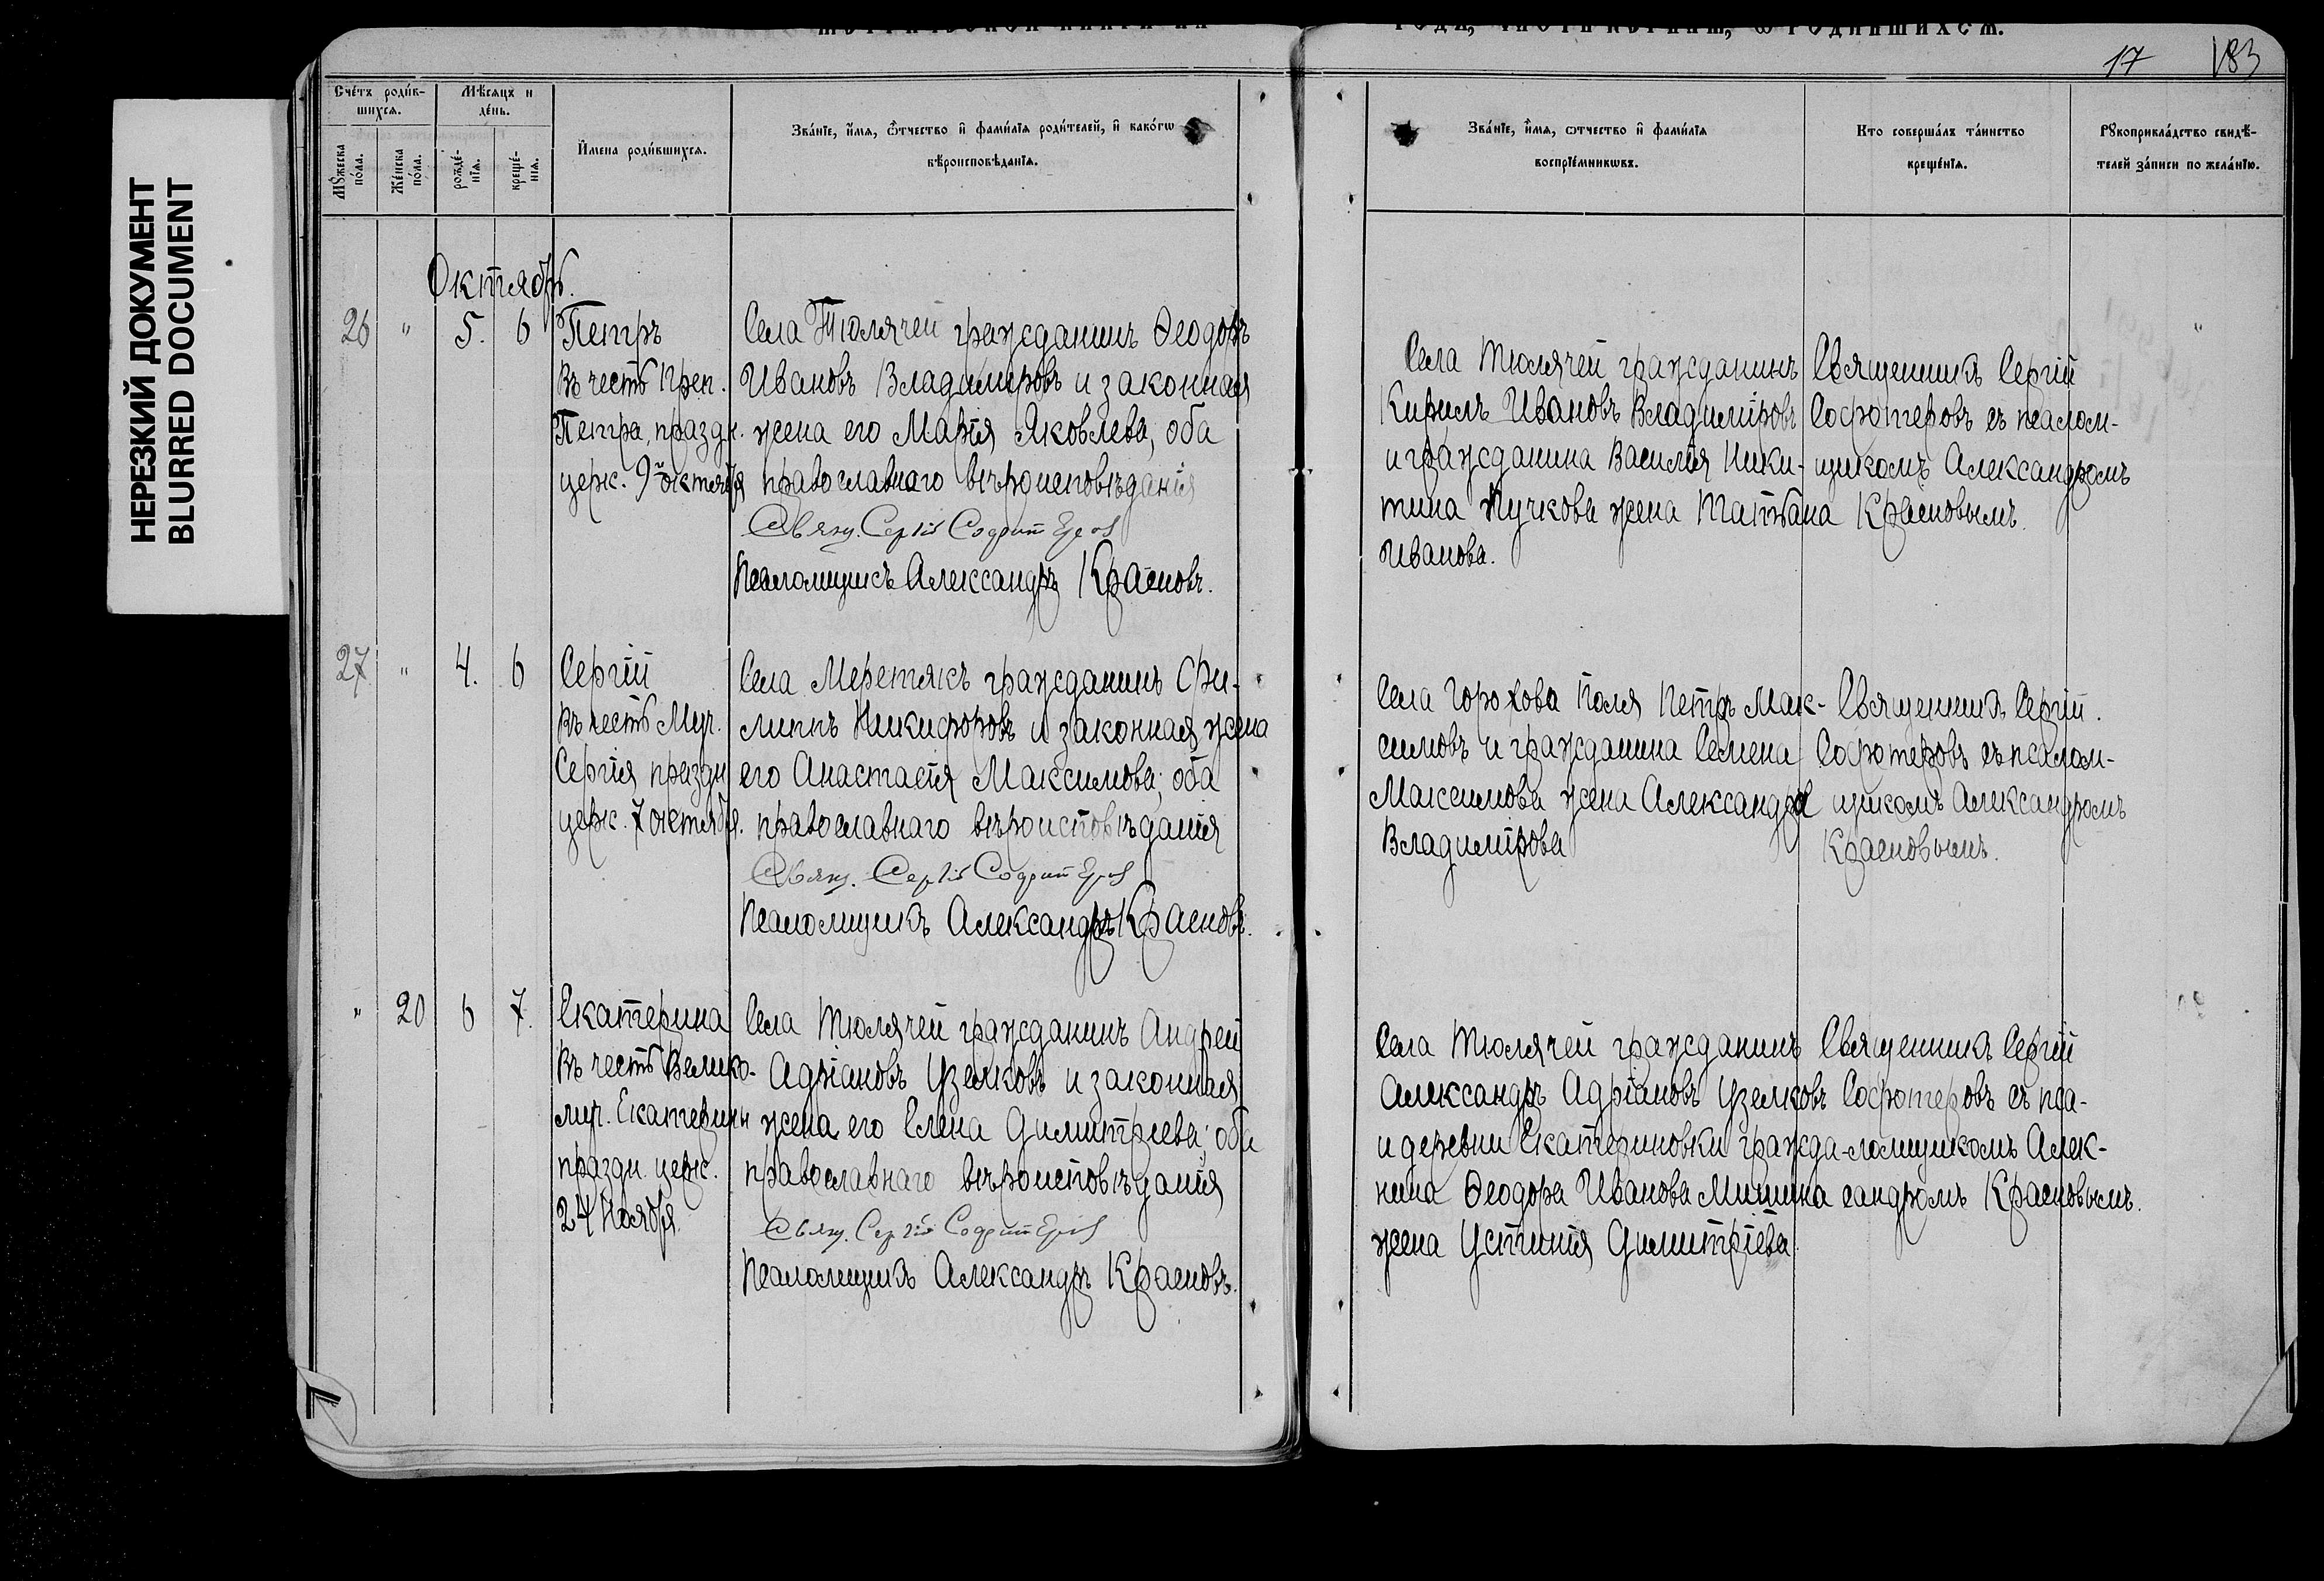 НЕРЕЗКИЙ ДОКУМЕНТ
BLURRED DOCUMENT
17 183
Счéтъ роди́в-
шихсѧ.
Мѣ́сѧцъ и
дéнь.
Мꙋ́жеска
по́ла.
Же́нска
по́ла.
рождé-
нїѧ.
крещé-
нїѧ.
И҆мена роди́вшихсѧ.
Зва́нїе, и҆́мѧ, ѻ҆́тчество и҆ фами́лїѧ роди́телей, и҆ како́гѡ
вѣроисповѣ́данїѧ.
Зва́нїе, и҆́мѧ, ѻтчество и҆ фами́лїѧ
воспрїе́мникѡвъ.
Кто соверша́лъ та́инство
креще́нїѧ.
Рꙋкоприкла́дство свидѣ́-
телей за́писи по жела́нїю.
Октябрь.
26 " 5. 6
Петръ
Въ честь Преп.
Петра, праздн.
церк. 9го октября
Села Тюлячей гражданинъ Ѳеодоръ
Ивановъ Владиміровъ и законная
жена его Марія Яковлева, оба
православнаго вѣроисповѣданія
Свящ. Сергій Софотеров
Псаломщикъ Александръ Красновъ.
Села Тюлячей гражданинъ
Кирилъ Ивановъ Владиміровъ
и гражданина Василія Ники-
тина Пучкова жена Татьяна
Иванова.
Священникъ Сергій
Софотеровъ съ псалом-
щикомъ Александромъ
Красновымъ.
"
27. " 4. 6
Сергій
Въ честь Муч.
Сергія праздн
церк. 7 октября.
Села Меретякъ гражданинъ Фи-
липпъ Никифоровъ и законная жена
его Анастасія Максимова; оба
православнаго вѣроисповѣданія
Свящ. Сергій Софотеров
Псаломщикъ Александръ Красновъ.
Села Горохова Поля Петръ Мак-
симовъ и гражданина Семена
Максимова жена Александра
Владимірова
Священникъ Сергій.
Софотеровъ съ псалом-
щикомъ Александромъ
Красновымъ.
" 20 6 7.
Екатерина
Въ честь Велико-
муч. Екатерины
праздн. церк.
24 Ноября.
Села Тюлячей гражданинъ Андрей
Адріановъ Узелковъ и законная
жена его Елена Димитріева; оба
православнаго вѣроисповѣданія
Свящ. Сергій Софотеров
Псаломщикъ Александръ Красновъ.
Села Тюлячей гражданинъ
Александръ Адріановъ Узелковъ
и деревни Екатериновки гражда-
нина Ѳеодора Иванова Мишина
жена Устинія Димитріева.
Священникъ Сергій
Софотеровъ съ пса-
ломщикомъ Алек-
сандромъ Красновымъ.